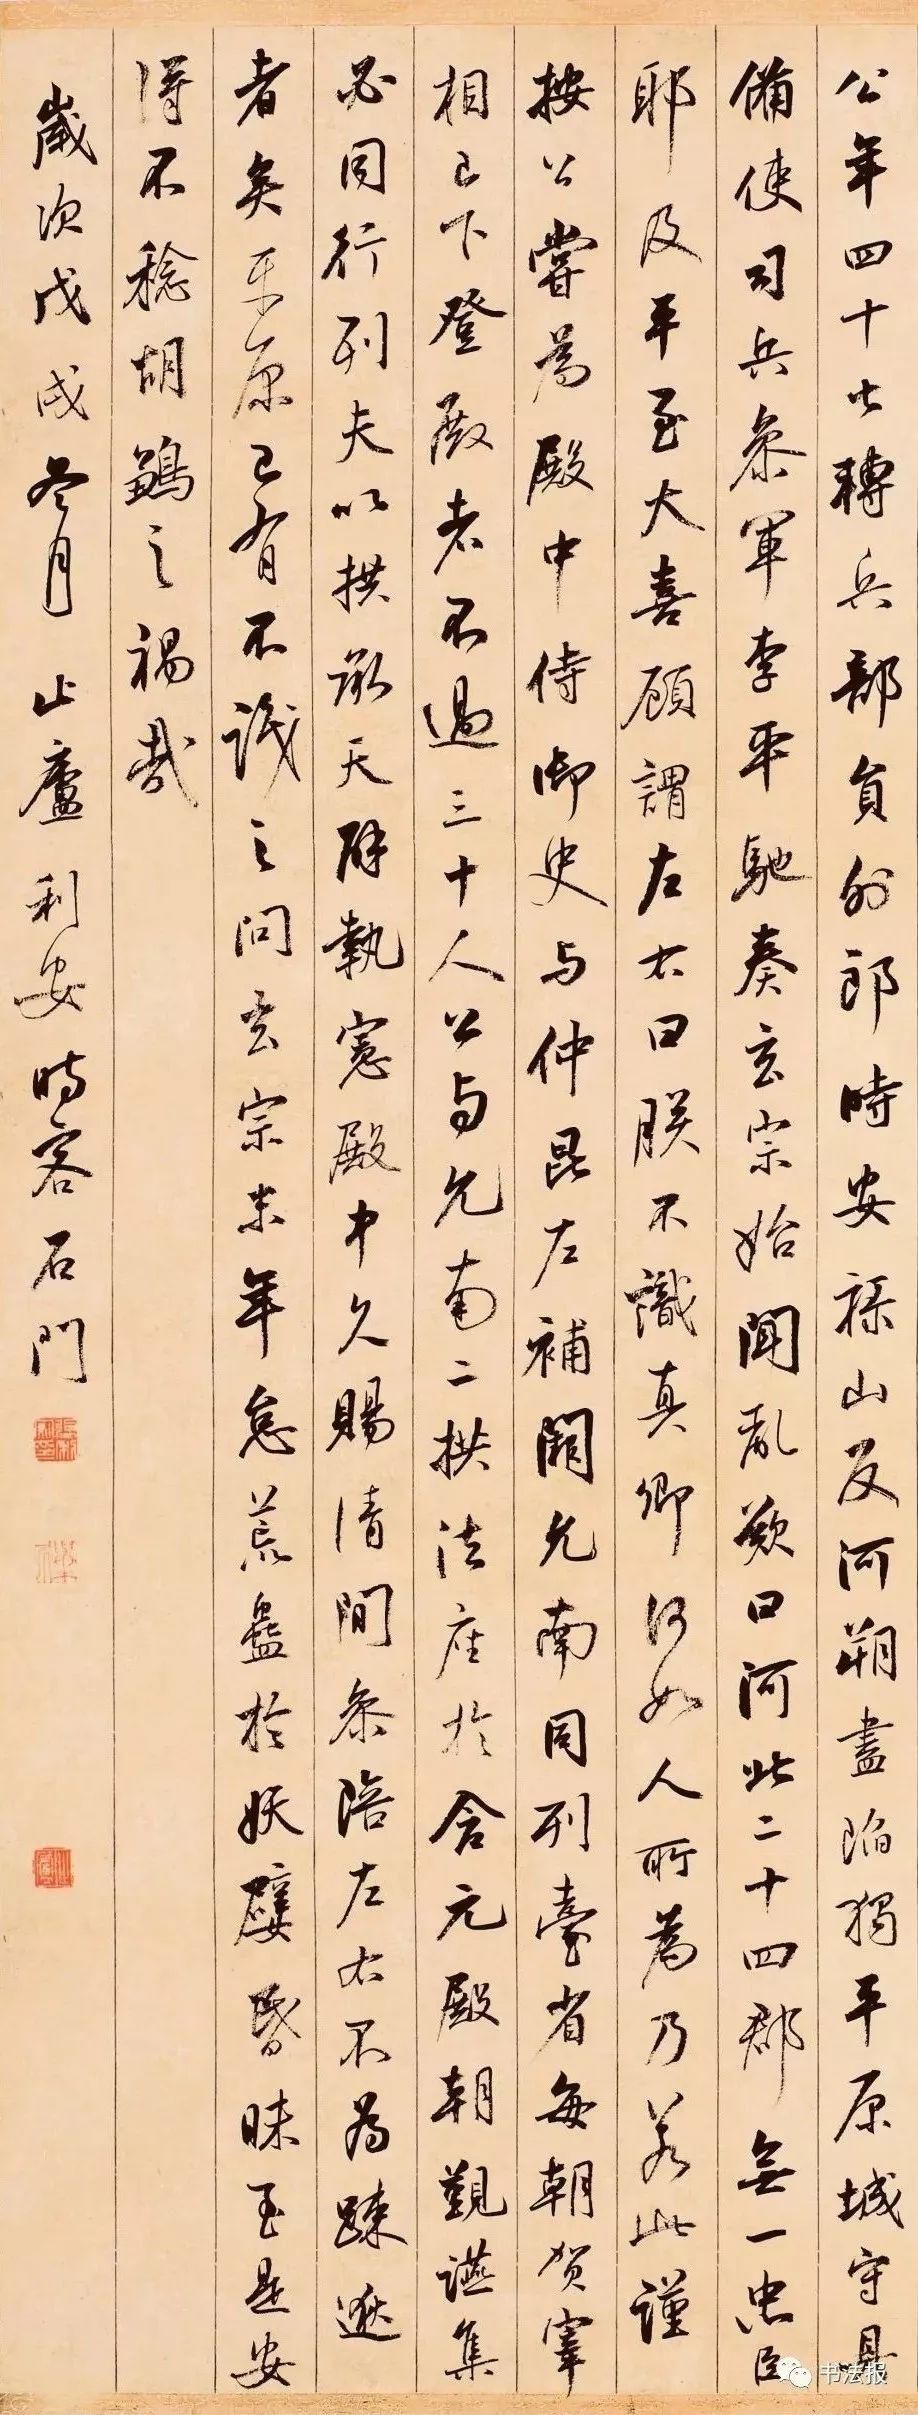 公年四十七轉兵部員外郎時安祿山反河朔盡陷獨平原城守具
備使司兵參軍李平馳奏玄宗始聞亂歎曰河北二十四郡無一忠臣
耶及平至大喜顧謂左右曰朕不識真卿何如人所為乃若此謹
按公嘗為殿中侍御史与仲昆左補闕允南同列臺省每朝賀宰
相已下登殿者不過三十人公与允南二拱法座於含元殿朝覲讌集
必同行列夫以拱承天辟執憲殿中久賜清閒參陪左右不為疎逖
者矣平原已有不識之問玄宗末年怠荒蠱於妖嬖昏昧至是安
得不稔胡鶵之禍哉
歲次戊戌冬月 止廬利安時客石門
书法报